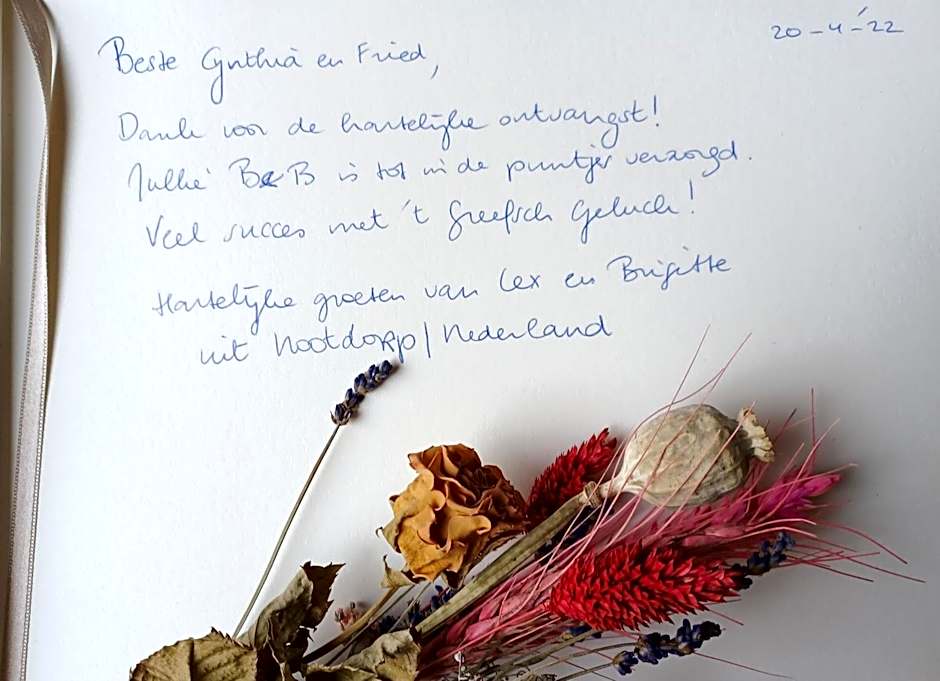 20-4-'22
Beste Cynthia en Fried,
Dank voor de hartelijke ontvangst!
Jullie B&B is tot in de puntjes verzorgd.
Veel succes met 't Greefsch Geluck!
Hartelijke groeten van Lex en Brigitte
uit Nootdorp/Nederland